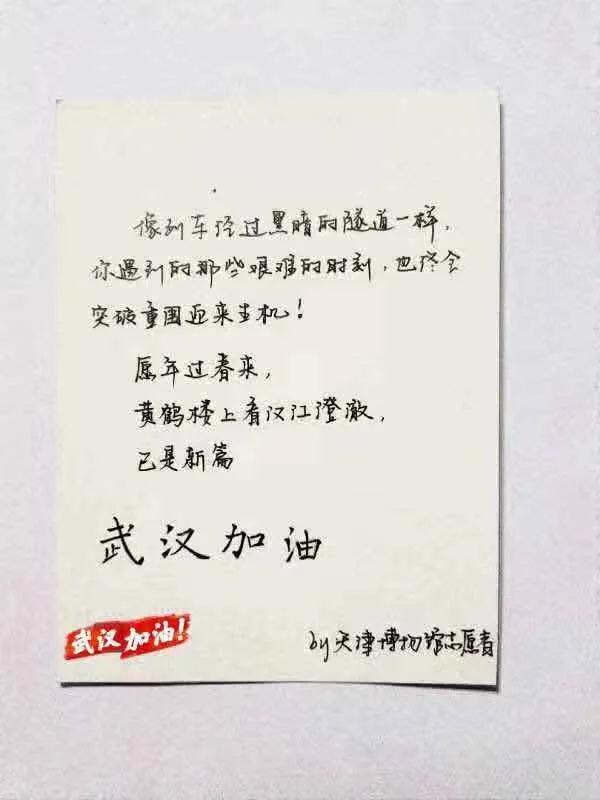 像列车经过黑暗的隧道一样,
你遇到的那些艰难的时刻,也终会
突破重围迎来生机!
愿年过春来,
黄鹤楼上看汉江澄澈,
已是新篇
武汉加油
武汉加油!
by天津博物馆志愿者